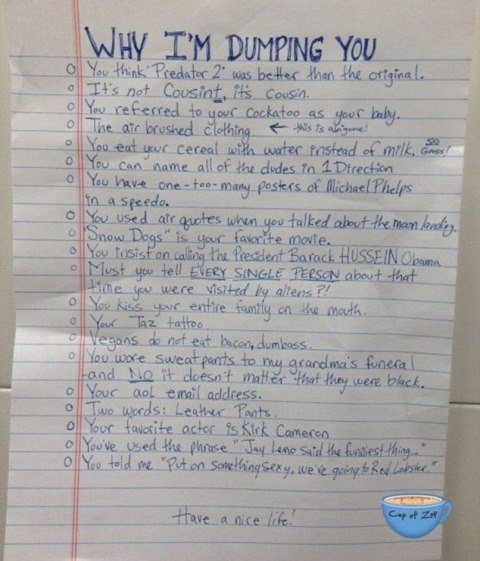 WHY I'M DUMPING YOU
o You think 'Predator 2' was better than the original.
o It's not Cousint, it's cousin.
o You referred to your cockatoo as your baby.
o The air brushed clothing. ← this is a biggone!
o You eat your cereal with water instead of milk. SO GROSS!
o You can name all of the dudes in 1 Direction
o You have one-too-many posters of Michael Phelps
in a speedo.
o You used air quotes when you talked about the moon landing.
o "Snow Dogs" is your favorite movie.
o You insist on calling the President Barack HUSSEIN Obama
o Must you tell EVERY SINGLE PERSON about that
time you were visited by aliens?!
o You kiss your entire family on the mouth.
o Your Taz tattoo
o Vegans do not eat bacon, dumbass.
o You wore sweatpants to my grandma's funeral
-and NO it doesn't matter that they were black.
o Your aol email address.
o Two words: Leather Pants.
o Your favorite actor is Kirk Cameron
o You've used the phrase "Jay Leno said the funniest thing..."
o You told me "Put on something sexy, we're going to Red Lobster."
Have a nice life!
Cup of Zup